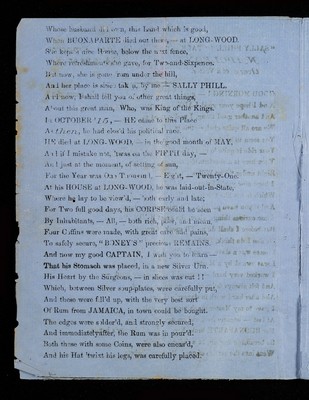 Whose husband did own, this Land which is good,
When BUONAPARTE died out there,—at LONG-WOOD.
She kept a nice House, below the next fence,
Where refreshments she gave, for Two-and-Sixpence.
But now, she is gone from under the hill,
And her place is since taken, by me — SALLY PHILL.
And now, I shall tell you of other great things,
About this great man, Who, was King of the Kings.
In OCTOBER '15,— HE came to this Place
As then, he had clos'd his political race.
HE died at LONG-WOOD,— in the good month of MAY,
And if I mistake not, 'twas on the FIFTH day,—
And just at the moment, of setting of sun,
For the Year was One Thousand,— Eight,—Twenty-One.
At his HOUSE at LONG-WOOD, he was laid-out-in-State,
Where he lay to be view'd,—both early and late;
For Two full good days, his CORPSE could be seen
By Inhabitants,—All,—both rich, poor,
Four Coffins were made, with great care and pains,
To safely secure, "BONEY'S" precious REMAINS.
And now my good CAPTAIN, I wish you to learn—
That his Stomach was placed, in a new Silver Urn.
His Heart by the Surgeons,—in slices was cut!!
Which, between Silver soup-plates, were carefully put,
And these were fill'd up, with the very best sort
Of Rum from JAMAICA, in town could be bought.
The edges were solder'd, and strongly secured,
And immediately after, the Rum was in pour'd.
Both these with some Coins, were also encas'd,
And his Hat 'twixt his legs, was carefully placed.